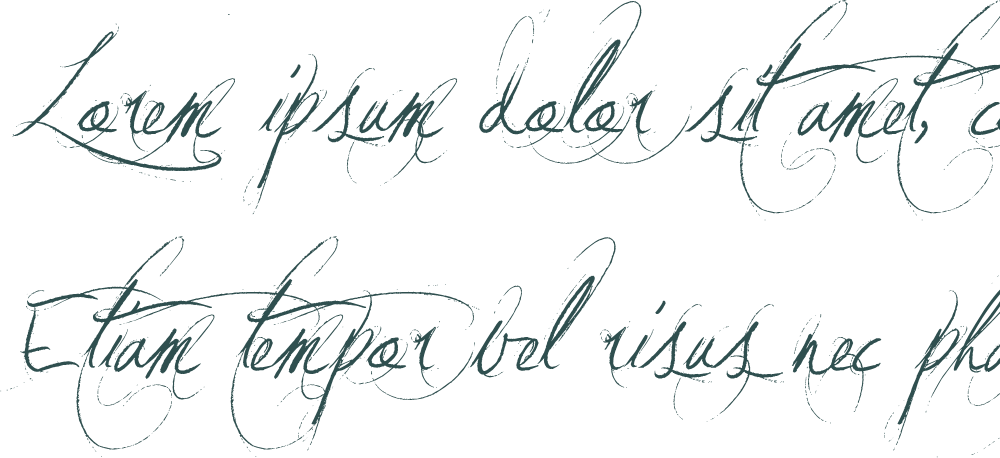 Lorem ipsum dolor sit amet, c
Etiam tempor vel risus nec pha